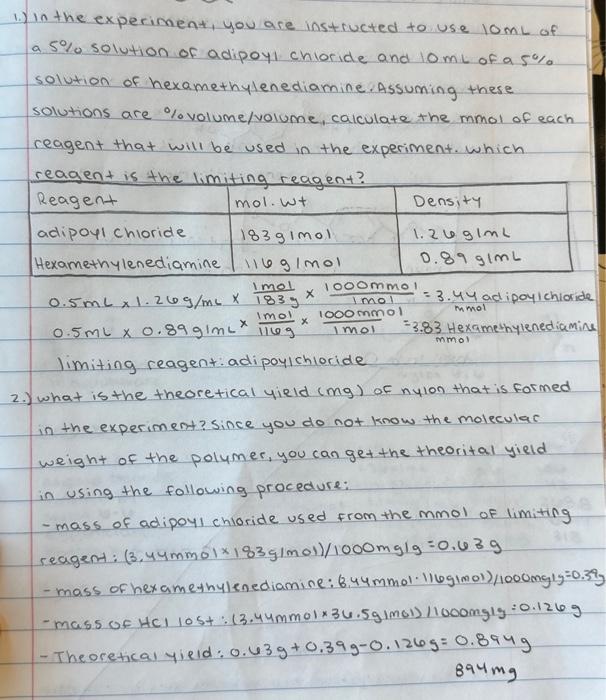 1.) in the experiment, you are instructed to use 10mL of
a 5% solution of adipoyl chloride and 10mL of a 5%
solution of hexamethylenediamine. Assuming these
solutions are % volume/volume, calculate the mmol of each
reagent that will be used in the experiment. which
reagent is the limiting reagent?
Reagent mol. wt Density
adipoyl chloride 183g/mol 1.26g/mL
Hexamethylenediamine 116g/mol 0.89g/mL
0.5mL x 1.26g/mL x 1mol/183g x 1000mmol/1mol = 3.44 adipoylchloride
mmol
0.5mL x 0.89g/mL x 1mol/116g x 1000mmol/1mol = 3.83 Hexamethylenediamine
mmol
limiting reagent: adipoylchloride
2.) what is the theoretical yield (mg) of nylon that is formed
in the experiment? Since you do not know the molecular
weight of the polymer, you can get the theorital yield
in using the following procedure:
-mass of adipoyl chloride used from the mmol of limiting
reagent: (3.44mmol x 183g/mol)/1000mg/g = 0.63g
-mass of hexamethylenediamine: (3.44mmol · 116g/mol)/1000mg/g = 0.39g
-mass of HCl lost: (3.44mmol x 36.5g/mol)/1000mg/g = 0.126g
-Theoretical yield: 0.63g + 0.39g - 0.126g = 0.894g
894mg